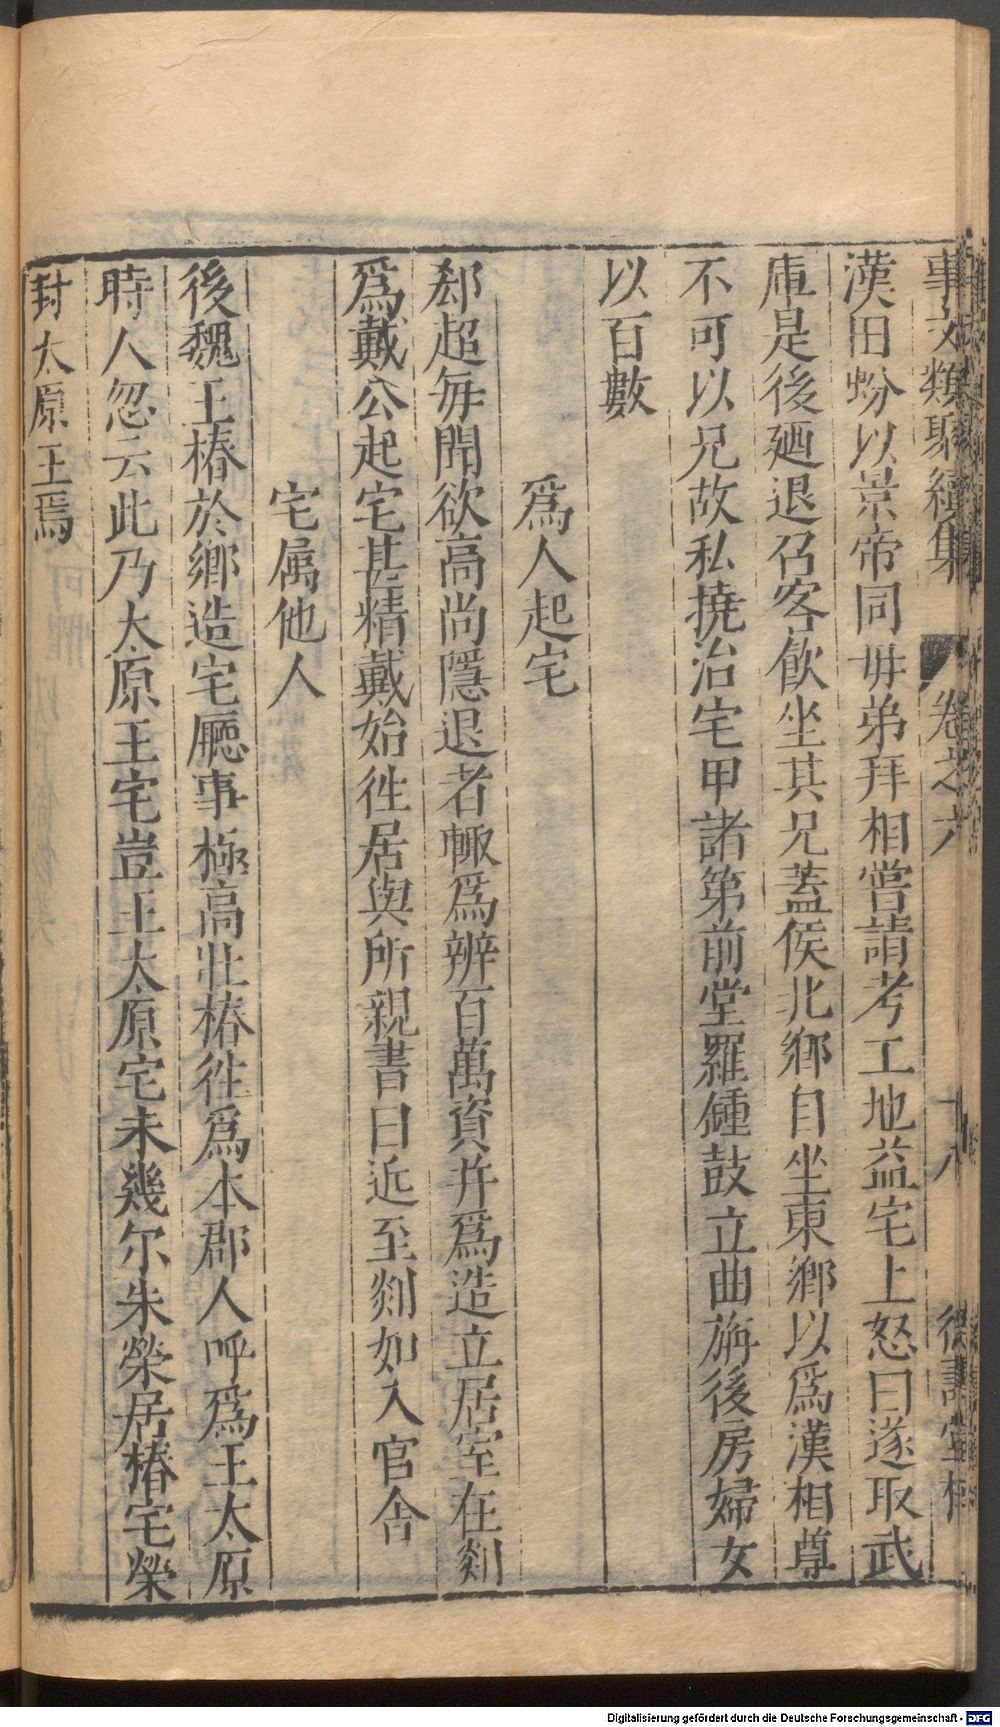 事文類聚續集 卷之六 十八
漢田蚡以景帝同毋弟拜相嘗請考工地益宅上怒曰遂取武
庫是後廼退召客飲坐其兄蓋侯北鄉自坐東鄉以爲漢相尊
不可以兄故私撓治宅甲諸第前堂羅鍾鼓立曲旃後房婦女
以百數
爲人起宅
郄超毎聞欲高尚隱退者輙爲辨百萬資并爲造立居室在剡
爲戴公起宅甚精戴始徃居與所親書曰近至剡如入官舎
宅属他人
後魏王椿於鄉造宅廳事極高壯椿徃爲本郡人呼爲王太原
時人忽云此乃太原王宅豈王太原宅未幾尔朱榮居椿宅榮
封太原王焉
Digitalisierung gefördert durch die Deutsche Forschungsgemeinschaft - DFG